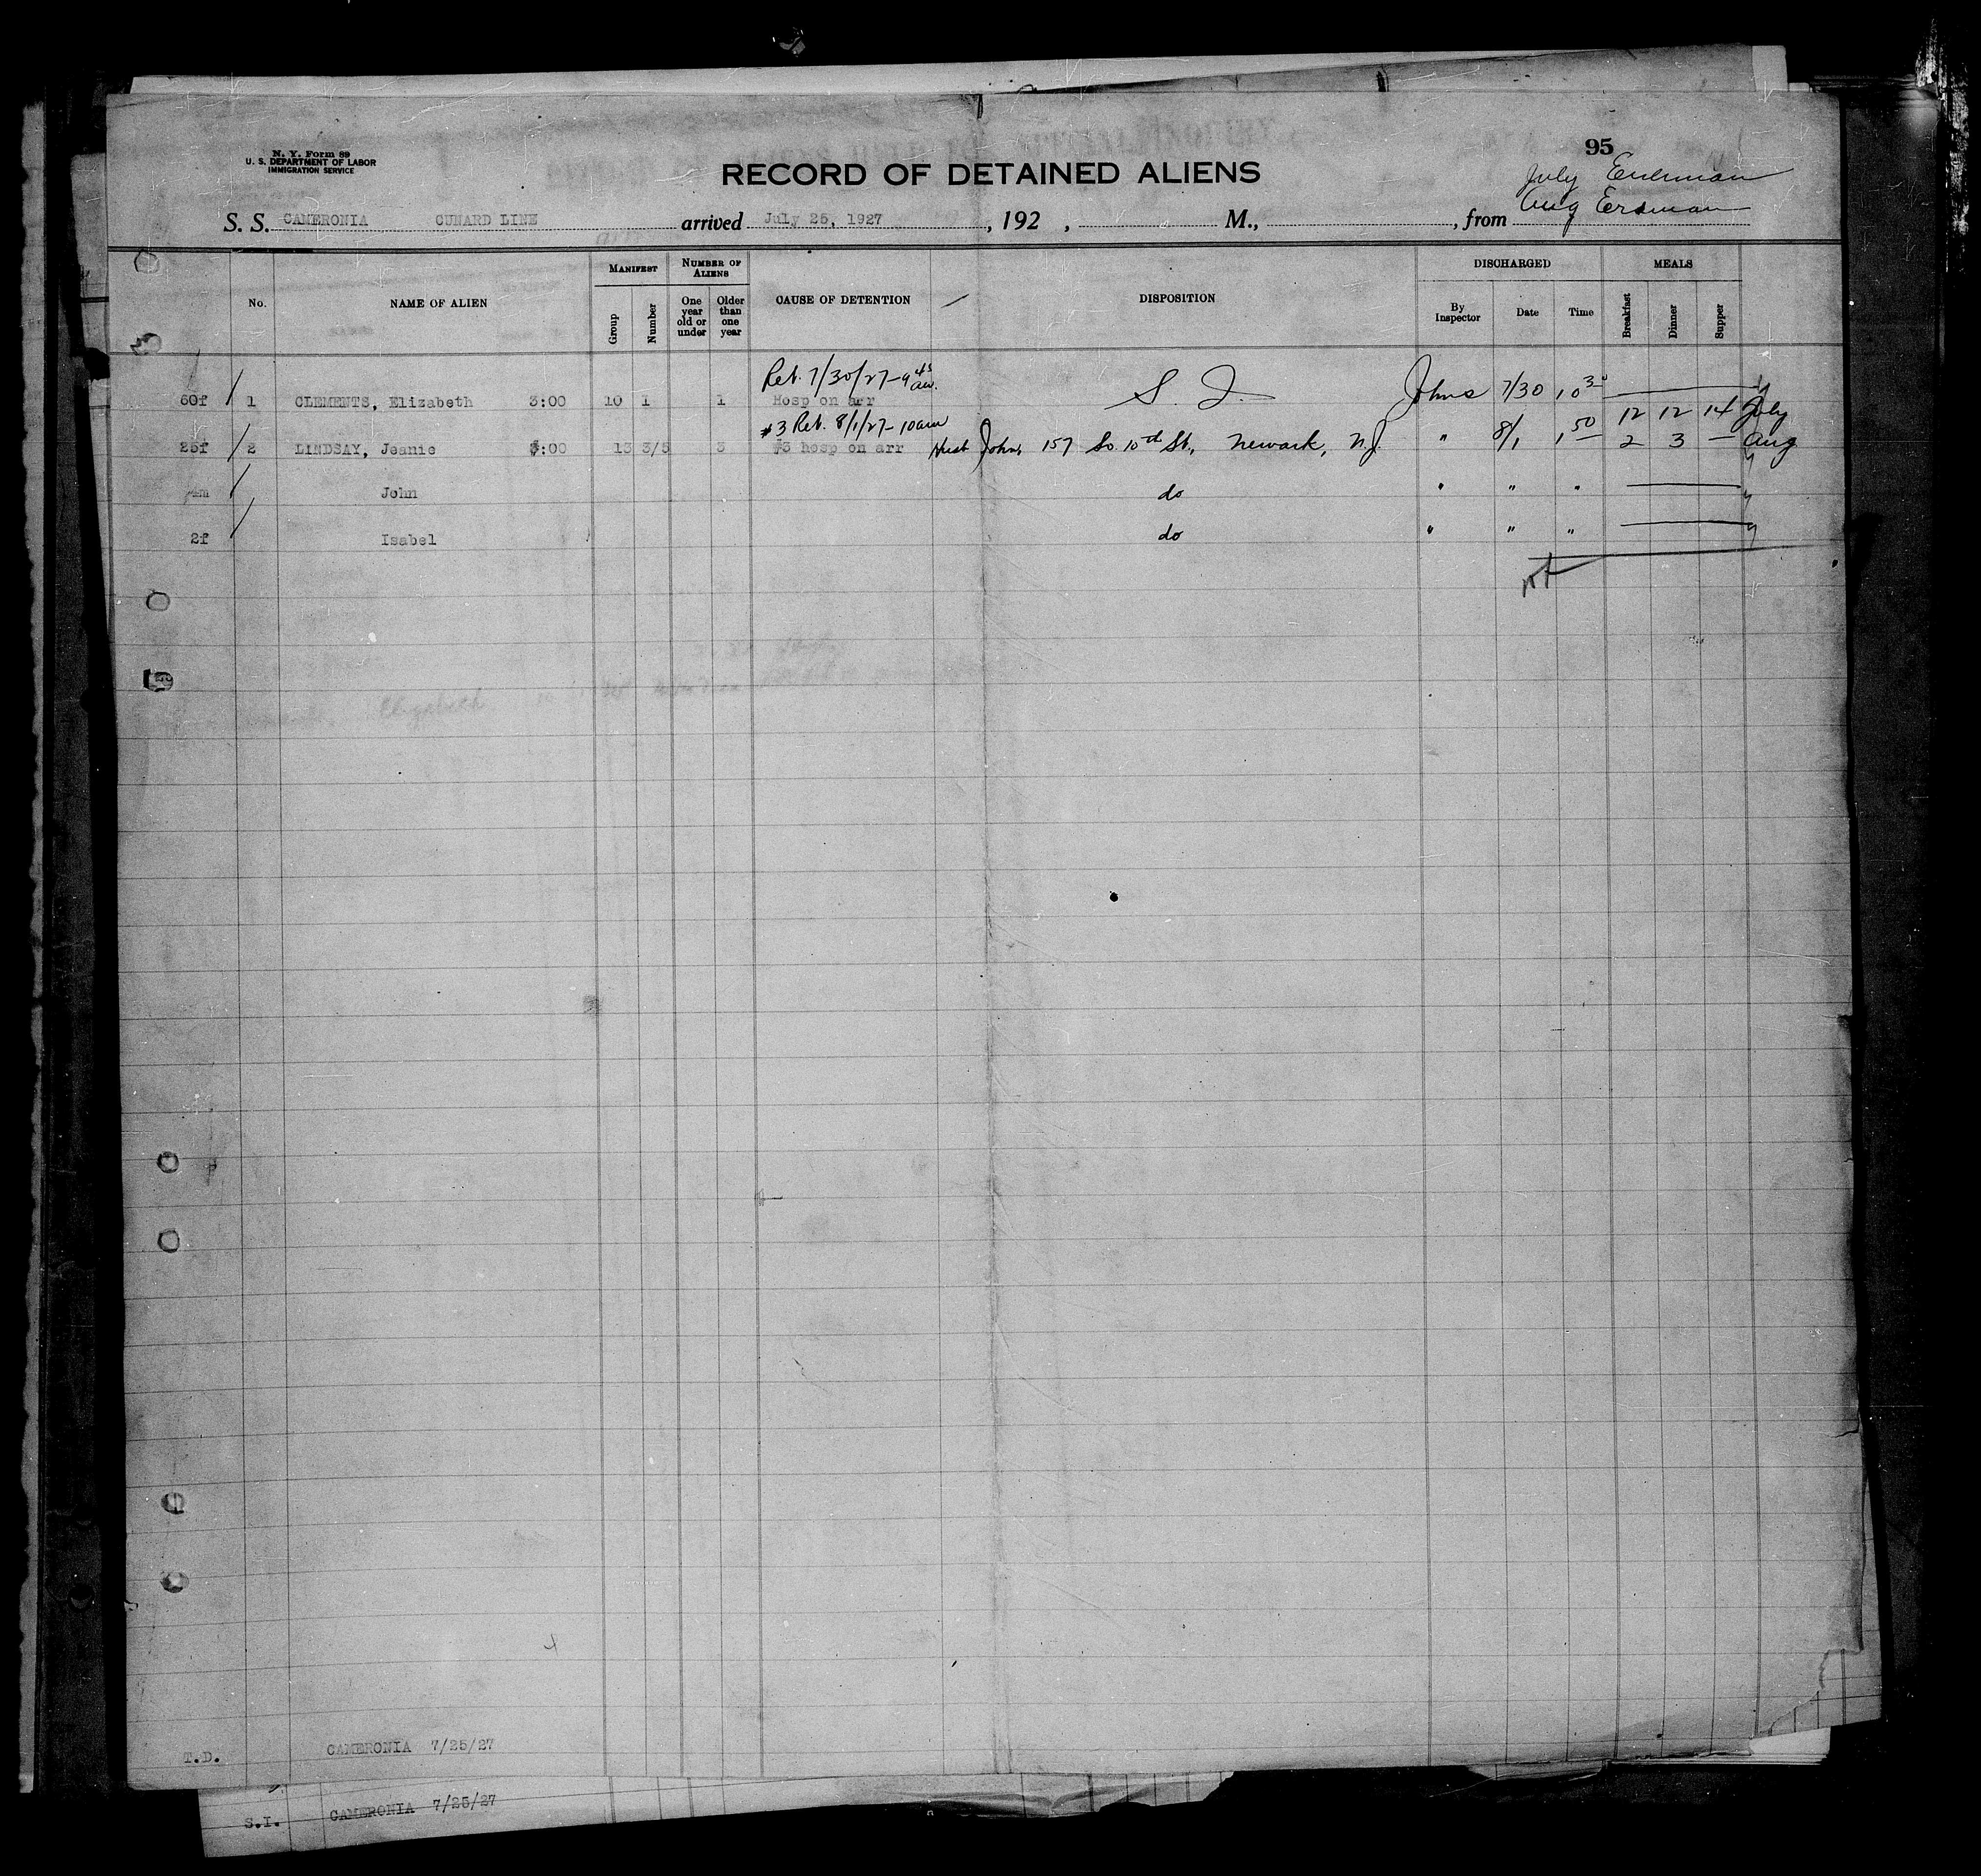 95
N. Y. Form 89
U. S. DEPARTMENT OF LABOR
IMMIGRATION SERVICE
RECORD OF DETAINED ALIENS
July
Aug Erdman
S. S. CAMERONIA CUNARD LINE arrived July 25, 1927, 192 , M., , from
No. NAME OF ALIEN MANIFEST NUMBER OF ALIENS CAUSE OF DETENTION DISPOSITION DISCHARGED MEALS
Group Number One year old or under Older than one year By Inspector Date Time Breakfast Dinner Supper
Ret. 7/30/27-9 45 am.
60f 1 CLEMENTS, Elizabeth 3:00 10 1 1 Hosp on arr S. I. Johns 7/30 10 30
#3 Ret. 8/1/27-10am 12 12 14 July
25f 2 LINDSAY, Jeanie 3:00 13 3/5 3 #3 hosp on arr Husb John, 157 So. 10th St., Newark, N.J. " 8/1 1 50 2 3 — Aug
John do " " "
2f Isabel do " " "
Elizabeth
T.D. CAMERONIA 7/25/27
S.I. CAMERONIA 7/25/27